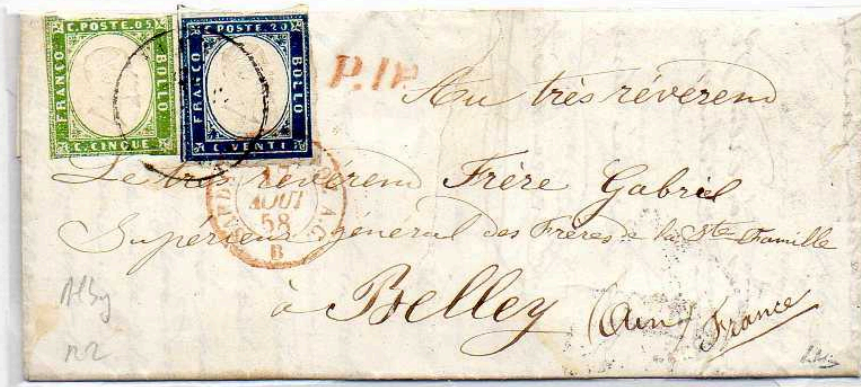 C. POSTE. 05
FRANCO
BOLLO
C. CINQUE
C. POSTE. 20
FRANCO
BOLLO
C. VENTI
P.
Au très révérend
Le très révérend Frère Gabriel
AOUT
58
A.C.
B
Supérieur général des Frères de la Ste Famille
à Belley (Ain) France
Alby